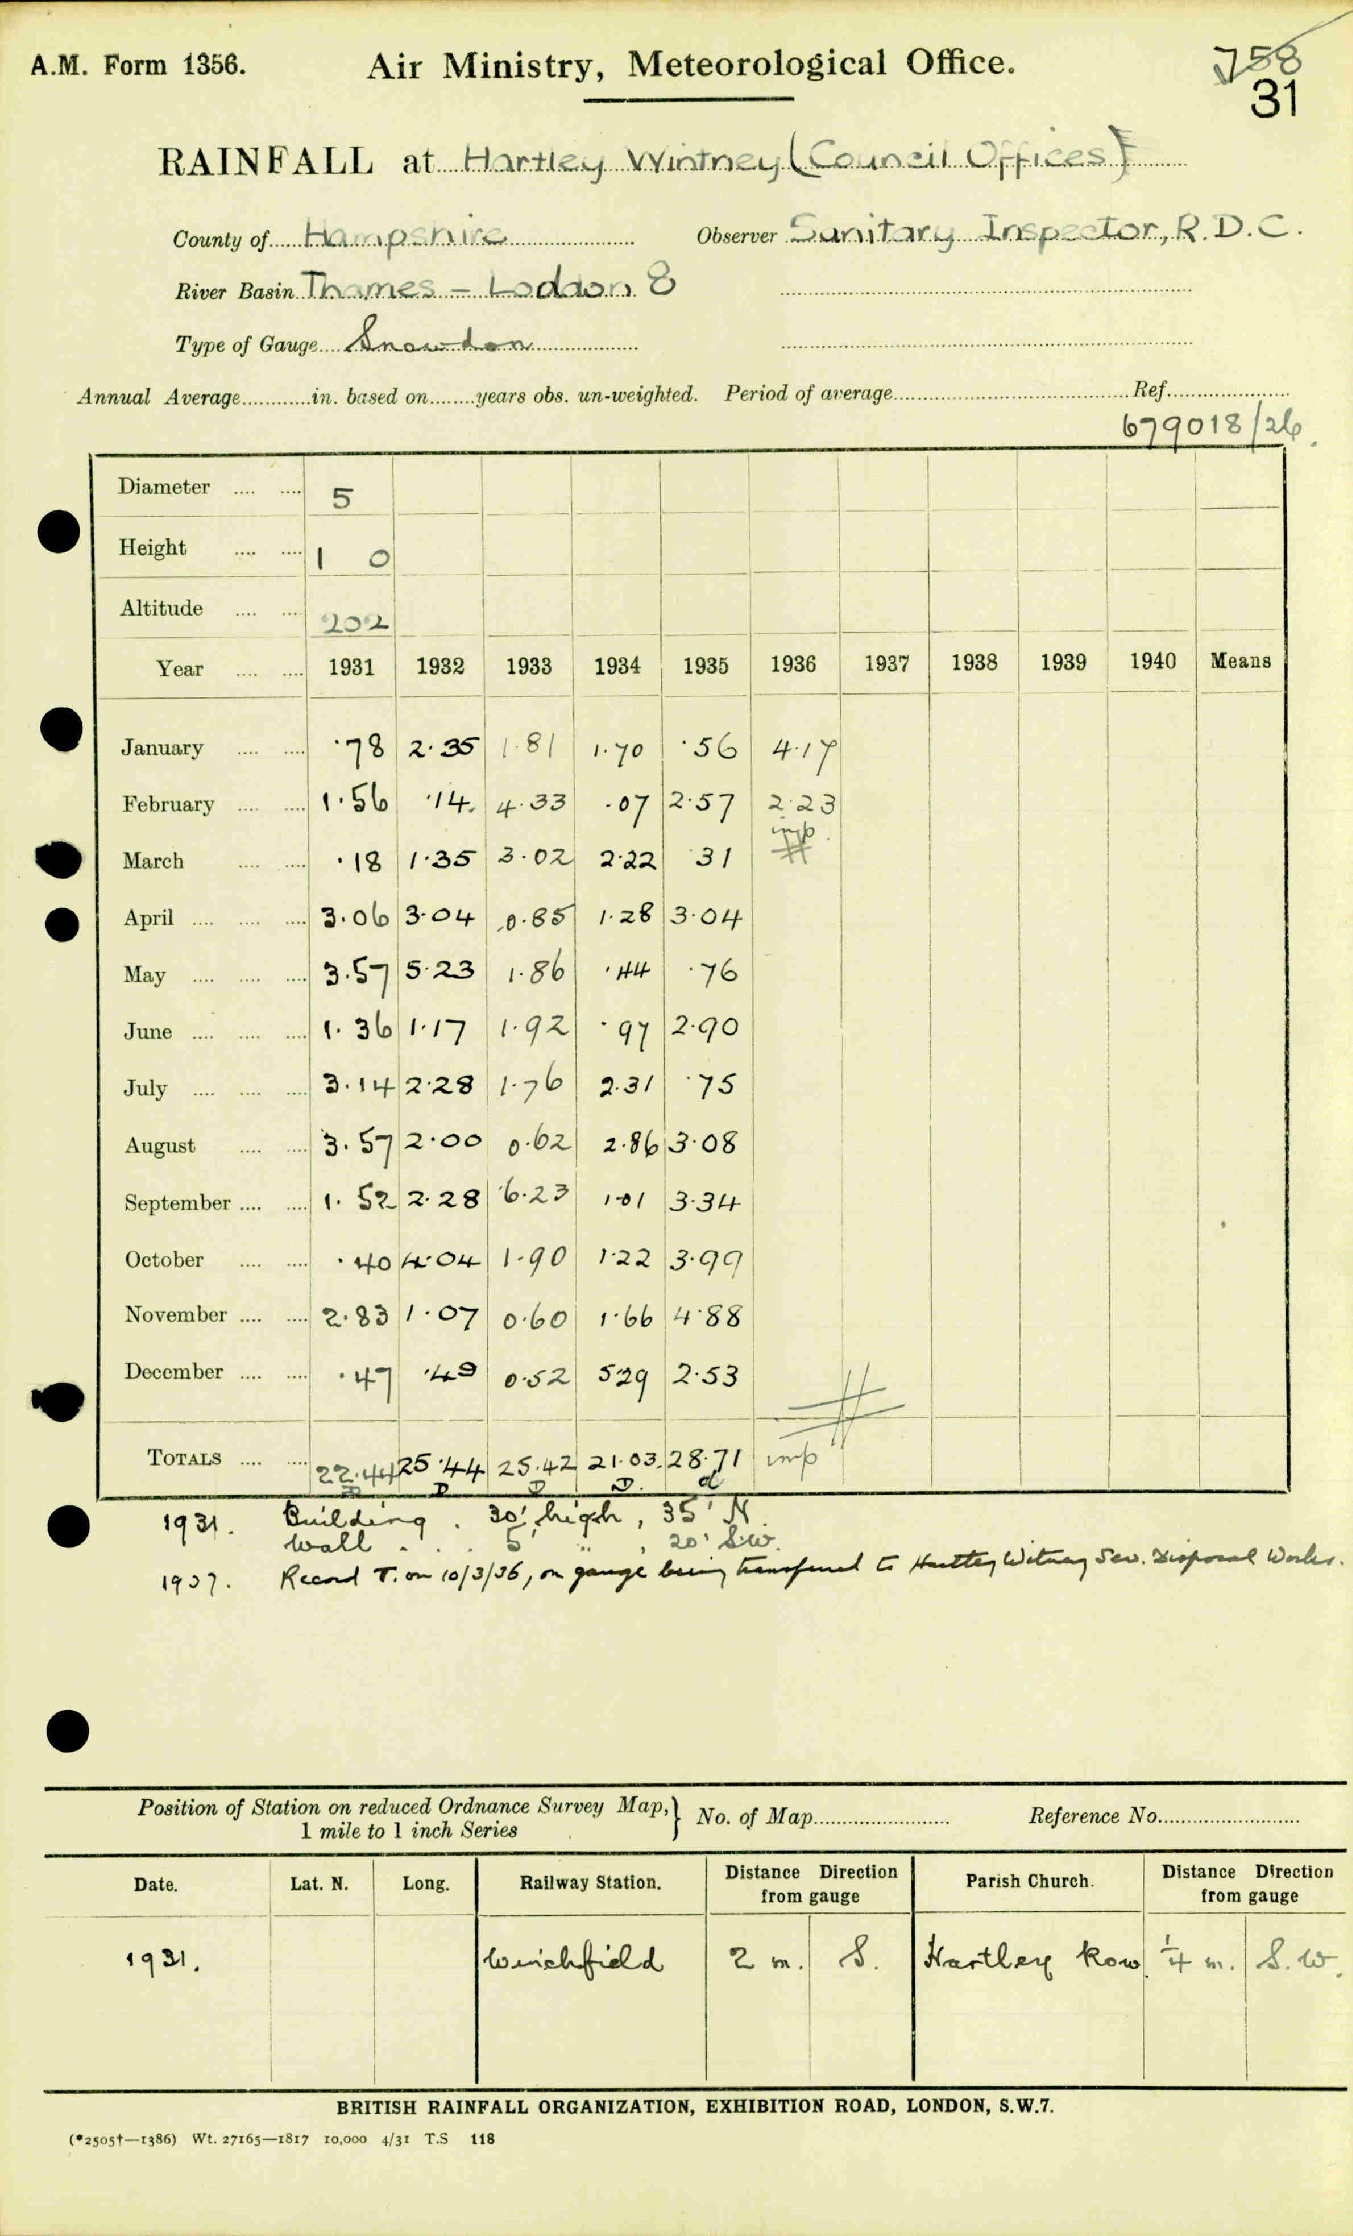 A.M. Form 1356. Air Ministry, Meteorological Office. 758
31
RAINFALL at Hartley Wintney (Council Offices)
County of Hampshire Observer Sanitary Inspector, R.D.C.
River Basin Thames - Loddon 8
Type of Gauge Snowdon
Annual Average in. based on years obs. un-weighted. Period of average Ref.
679018/26
Diameter 5
Height 1 0
Altitude 202
Year 1931 1932 1933 1934 1935 1936 1937 1938 1939 1940 Means
January ·78 2·35 1·81 1·70 ·56 4·17
February 1·56 ·14 4·33 ·07 2·57 2·23
imp
March ·18 1·35 3·02 2·22 ·31
April 3·06 3·04 0·85 1·28 3·04
May 3·57 5·23 1·86 ·44 ·76
June 1·36 1·17 1·92 ·97 2·90
July 3·14 2·28 1·76 2·31 ·75
August 3·57 2·00 0·62 2·86 3·08
September 1·52 2·28 6·23 1·01 3·34
October ·40 4·04 1·90 1·22 3·99
November 2·83 1·07 0·60 1·66 4·88
December ·47 ·49 0·52 5·29 2·53
TOTALS 22·44 25·44 25·42 21·03 28·71 imp
D D D d
1931. Building . 30' high, 35' N.
Wall . . . 5' " , 20' S.W.
1937. Record T. on 10/3/36, on gauge being transferred to Hartley Witney Sew. Disposal Works.
Position of Station on reduced Ordnance Survey Map,} No. of Map Reference No.
1 mile to 1 inch Series
Date. Lat. N. Long. Railway Station. Distance Direction from gauge Parish Church. Distance Direction from gauge
1931. Winchfield 2 m. S. Hartley Row. ¼ m. S.W.
BRITISH RAINFALL ORGANIZATION, EXHIBITION ROAD, LONDON, S.W.7.
(*2505†—1386) Wt. 27165—1817 10,000 4/31 T.S 118